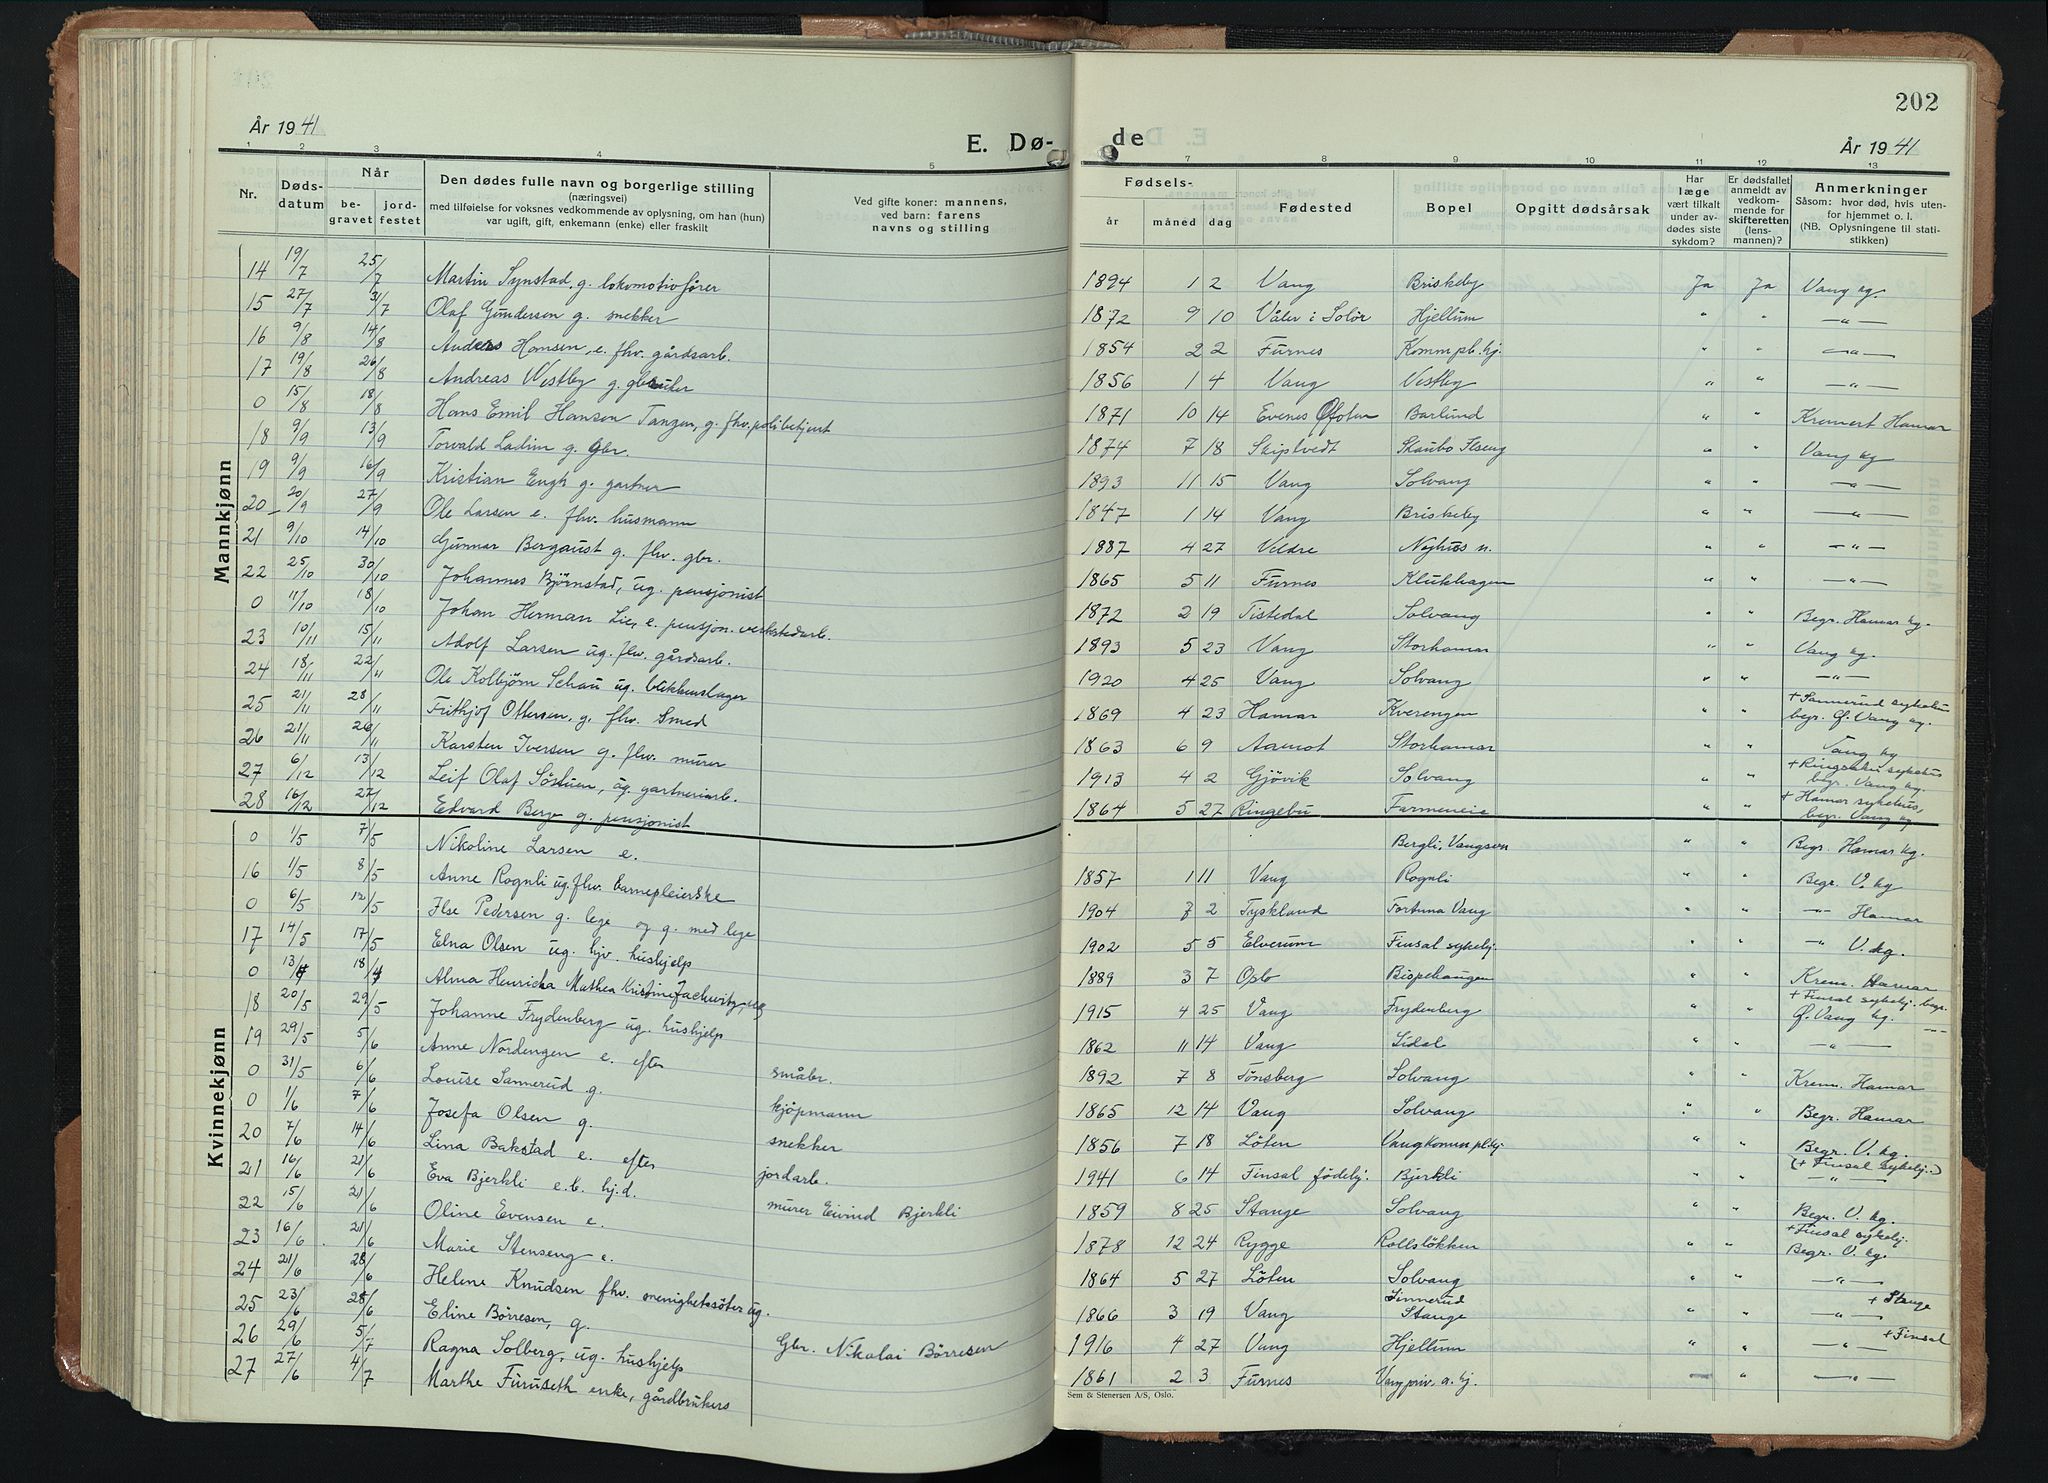 202
År 1941
E. Dø-
de
År 1941
1 2 3 4 5 7 8 9 10 11 12 13
Nr.
Døds-
datum
Når
be-
gravet
jord-
festet
Den dødes fulle navn og borgerlige stilling
(næringsvei)
med tilføielse for voksnes vedkommende av oplysning, om han (hun)
var ugift, gift, enkemann (enke) eller fraskilt
Ved gifte koner: mannens,
ved barn: farens
navns og stilling
Fødsels-
år måned dag
Fødested
Bopel
Opgitt dødsårsak
Har
læge
vært tilkalt
under av-
dødes siste
sykdom?
Er dødsfallet
anmeldt av
vedkom-
mende for
skifteretten
(lens-
mannen)?
Anmerkninger
Såsom: hvor død, hvis uten-
for hjemmet o. l.
(NB. Oplysningene til stati-
stikken)
Mannkjønn
14 19/7 25/7 Martin Synstad, g. lokomotivfører 1894 1 2 Vang Briskeby Ja Ja Vang kg.
15 27/7 31/7 Olaf Gundersen g. snekker 1872 9 10 Våler i Solør Hjellum " " —"—
16 9/8 14/8 Anders Hansen, e. fhv. gårdsarb. 1854 2 2 Furnes Komm.pl.hj. " " —"—
17 19/8 26/8 Andreas Westby g. 1856 1 4 Vang Vestby " " —"—
0 15/8 18/8 Hans Emil Hansen Tangen, g. fhv. politibetjent 1871 10 14 Evenes Ofoten Barlund " " Kremert Hamar
18 9/9 13/9 Torvald Ladim g. Gbr. 1874 7 18 Skiptvedt Skaubo Ilseng " " Vang kg
19 9/9 16/9 Kristian Engh g. gartner 1893 11 15 Vang Solvang " " —"—
20 20/9 27/9 Ole Larsen e. fhv. husmann 1847 1 14 Vang Briskeby " " —"—
21 9/10 14/10 Gunnar Bergaust g. fhv. gbr. 1887 4 27 Veldre Nyhus n. " " —"—
22 25/10 30/10 Johannes Bjørnstad, ug. pensjonist 1865 5 11 Furnes Klukhagen " " —"—
0 11/10 18/10 Johan Herman Lie, e. pensjon. verkstedarb. 1872 2 19 Tistedal Solvang " " Begr. Hamar kg.
23 10/11 15/11 Adolf Larsen ug. fhv. gårdsarb. 1893 5 23 Vang Storhamar " " Vang kg.
24 18/11 22/11 Ole Kolbjørn Schau ug. blikkenslager 1920 4 25 Vang Solvang " " —"—
25 21/11 28/11 Frithjof Ottersen, g. fhv. Smed 1869 4 23 Hamar Kverengen " " + Sannerud sykehus
begr. f. Vang kg.
26 21/11 26/11 Karsten Iversen g. fhv. murer 1863 6 9 Aamot Storhamar " " Vang kg
27 6/12 13/12 Leif Olaf Söstuen, ug. gartneriarb. 1913 4 2 Gjövik Solvang " " + Ringsaker sykehus
begr. Vang kg.
28 16/12 27/12 Edvard Berge g. pensjonist 1864 5 27 Ringebu Farmeneie " " + Hamar sykehus,
begr. Vang kg
Kvinnekjønn
0 1/5 7/5 Nikoline Larsen e. Bergli, Vangsveien " " Begr. Hamar kg.
16 1/5 8/5 Anne Rognli ug. fhv. barnepleierske 1857 1 11 Vang Rognli " " Begr. V. kg
0 6/5 12/5 Ilse Pedersen g. lege og g. med lege 1904 7 2 Tyskland Fortuna Vang " " —"— Hamar
17 14/5 17/5 Elna Olsen ug. hjv. hushjelp 1902 5 5 Elverum Finsal sykehj. " " —"— V. kg.
0 13/4 18/4 Alma Henricka Mathea Kristine Zachwitz, ug 1889 3 7 Oslo Bispehaugen " " Krem. Hamar
18 20/5 29/5 Johanne Frydenberg ug. hushjelp 1915 4 25 Vang Frydenberg " " + Finsal sykehj. begr.
f. Vang kg.
19 29/5 5/6 Anne Nordengen e. efter småbr. 1862 11 14 Vang Lidal " " —"—
0 31/5 6/6 Louise Sannerud g. kjøpmann 1892 7 8 Tönsberg Solvang " " Krem. Hamar
0 1/6 7/6 Josefa Olsen g. snekker 1865 12 14 Vang Solvang " " Begr. Hamar
20 7/6 14/6 Lina Bakstad e. efter jordarb. 1856 7 18 Löten Vang komm.pl.hj. " " Begr. V. kg.
(+ Finsal sykehj.)
21 16/6 21/6 Eva Bjerkli e.b. hj.d. murer Eivind Bjerkli 1941 6 14 Finsal fødehj. Bjerkli " " —"—
22 15/6 21/6 Oline Evensen e. 1859 8 25 Stange Solvang " " Begr. V. kg.
23 16/6 21/6 Marie Stenseng e. 1878 12 24 Rygge Rollsløkken " " + Finsal sykehj.
Begr. V. kg.
24 21/6 28/6 Helene Knudsen fhv. menighetssöster ug. 1864 5 27 Löten Solvang " " —"—
25 23/6 28/6 Eline Börresen, g. Gbr. Nikolai Börresen 1866 3 19 Vang Sinnerud
Stange " " —"— + Stange
26 29/6 5/7 Ragna Solberg, ug. hushjelp 1916 4 27 Vang Hjellum " " —"— + Finsal
27 27/6 4/7 Marthe Furuseth enke, gårdbrukers 1861 2 3 Furnes Vang priv. a. hj. — " —"—
Sem & Stenersen A/S, Oslo.